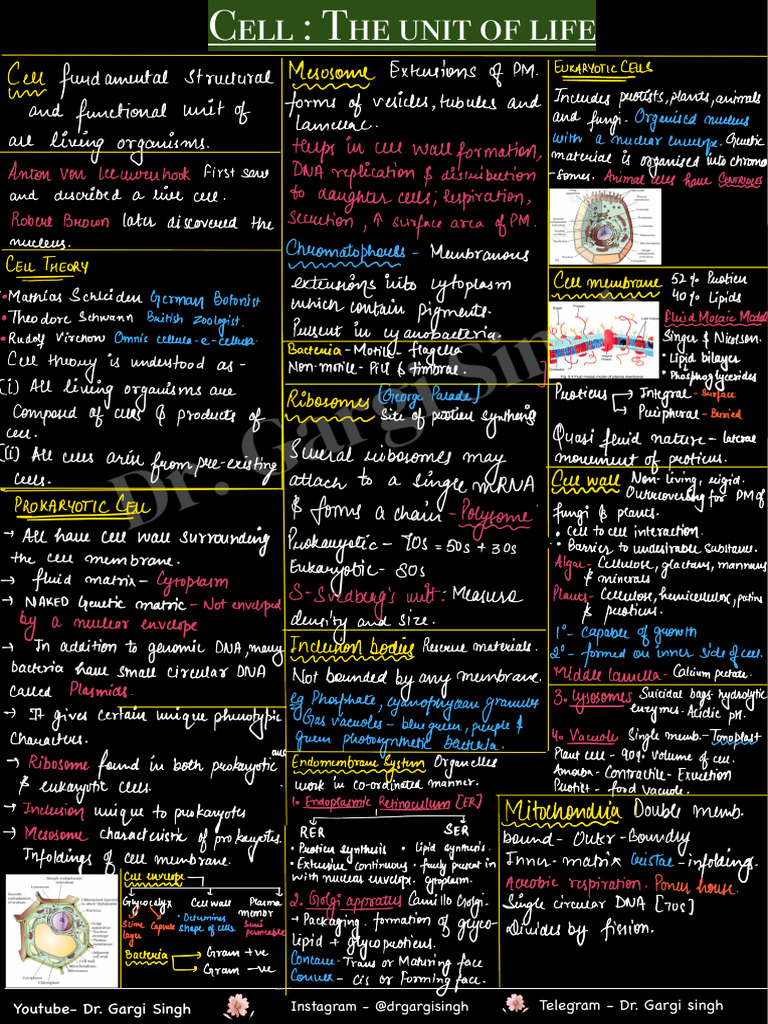 CELL : THE UNIT OF LIFE
Cell fundamental structural
and functional unit of
all living organisms.
Anton Von Leeuwenhook First saw
and described a live cell.
Robert Brown later discovered the
nucleus.
CELL THEORY
• Mathias Schleiden German Botonist
• Theodore Schwann British Zoologist.
• Rudolf Virchow Omnis cellula-e-cellula
Cell theory is understood as -
(i) All living organisms are
composed of cells & products of
cell.
(ii) All cells arise from pre-existing
cells.
PROKARYOTIC CELL
→ All have cell wall surrounding
the cell membrane.
→ fluid matrix - Cytoplasm
→ NAKED Genetic matric - Not enveloped
by a nuclear envelope
→ In addition to genomic DNA, many
bacteria have small circular DNA
called Plasmids.
→ It gives certain unique phenotypic
characters.
→ Ribosome found in both prokaryotic
& eukaryotic cells.
→ Inclusion unique to prokaryotes
→ Mesosome characteristic of prokaryotes.
Infoldings of cell membrane.
Cell envelope
Glycocalyx Cell wall Plasma
membr
Slime
layer
Capsule
• Determines
shape of cells
Semi
permeable
Bacteria
Gram +ve
Gram -ve
Mesosome Extensions of PM.
forms of vesicles, tubules and
Lamellae.
Helps in cell wall formation,
DNA replication & distribution
to daughter cells; respiration,
secretion, ↑ surface area of PM.
Chromatophores - Membranous
extensions into cytoplasm
which contain pigments.
Present in cyanobacteria.
Bacteria - Motile - flagella
Non-motile - Pili & fimbrae.
Ribosomes (George Palade)
Site of protein synthesis
Several ribosomes may
attach to a single mRNA
& forms a chain - Polysome
Prokaryotic - 70s = 50s + 30s
Eukaryotic - 80s
S - Svedberg's unit : Measure
density and size.
Inclusion bodies Reserve materials.
Not bounded by any membrane.
eg Phosphate, cyanophycean granules
Gas vacuoles - blue green, purple &
green photosynthetic bacteria.
Endomembrane System Organelles
work in co-ordinated manner.
1. Endoplasmic Reticulum [ER]
RER SER
• Protein synthesis • Lipid synthesis.
• Extensive continuous
with nuclear envelope.
Cytoplasm.
2. Golgi apparatus Camillo Golgi.
→ Packaging, formation of glyco-
Lipid + glycoproteins.
Concave - Trans or Maturing face
Convex - cis or Forming face.
EUKARYOTIC CELLS
Includes protists, plants, animals
and fungi. Organised nucleus
with a nuclear envelope. Genetic
material is organised into chromo
-somes. Animal cells have CENTRIOLES
Cell membrane 52% Protien
40% Lipids
Fluid Mosaic Model
Singer & Nicolson.
• Lipid bilayer
• Phosphoglycerides
Protiens
Integral - Surface
Peripheral - Buried
Quasi fluid nature - lateral
movement of protiens.
Cell wall Non-living, rigid.
Outercovering for PM of
fungi & plants.
• Cell to cell interaction.
• Barrier to undesirable substance.
Algae - Cellulose, glactans, mannans
& minerals
Plants - Cellulose, hemicellulose, pectins
& protiens.
1° - Capable of growth
2° - formed on inner side of cell.
Middle lamella - Calcium pectate.
3. Lysosomes Suicidal bags. hydrolytic
enzymes. Acidic pH.
4. Vacuole Single memb. - Tonoplast
Plant cell - 90% volume of cell.
Amoeba - Contractile - Excretion
Protist - food vacuole.
Mitochondria Double memb.
bound - Outer - Boundry
Inner - matrix Cristae - infoldings.
Aerobic respiration. Power house.
Single circular DNA [70s]
Divides by fission.
Dr. Gargi Singh
Youtube- Dr. Gargi Singh
Instagram - @drgargisingh
Telegram - Dr. Gargi singh